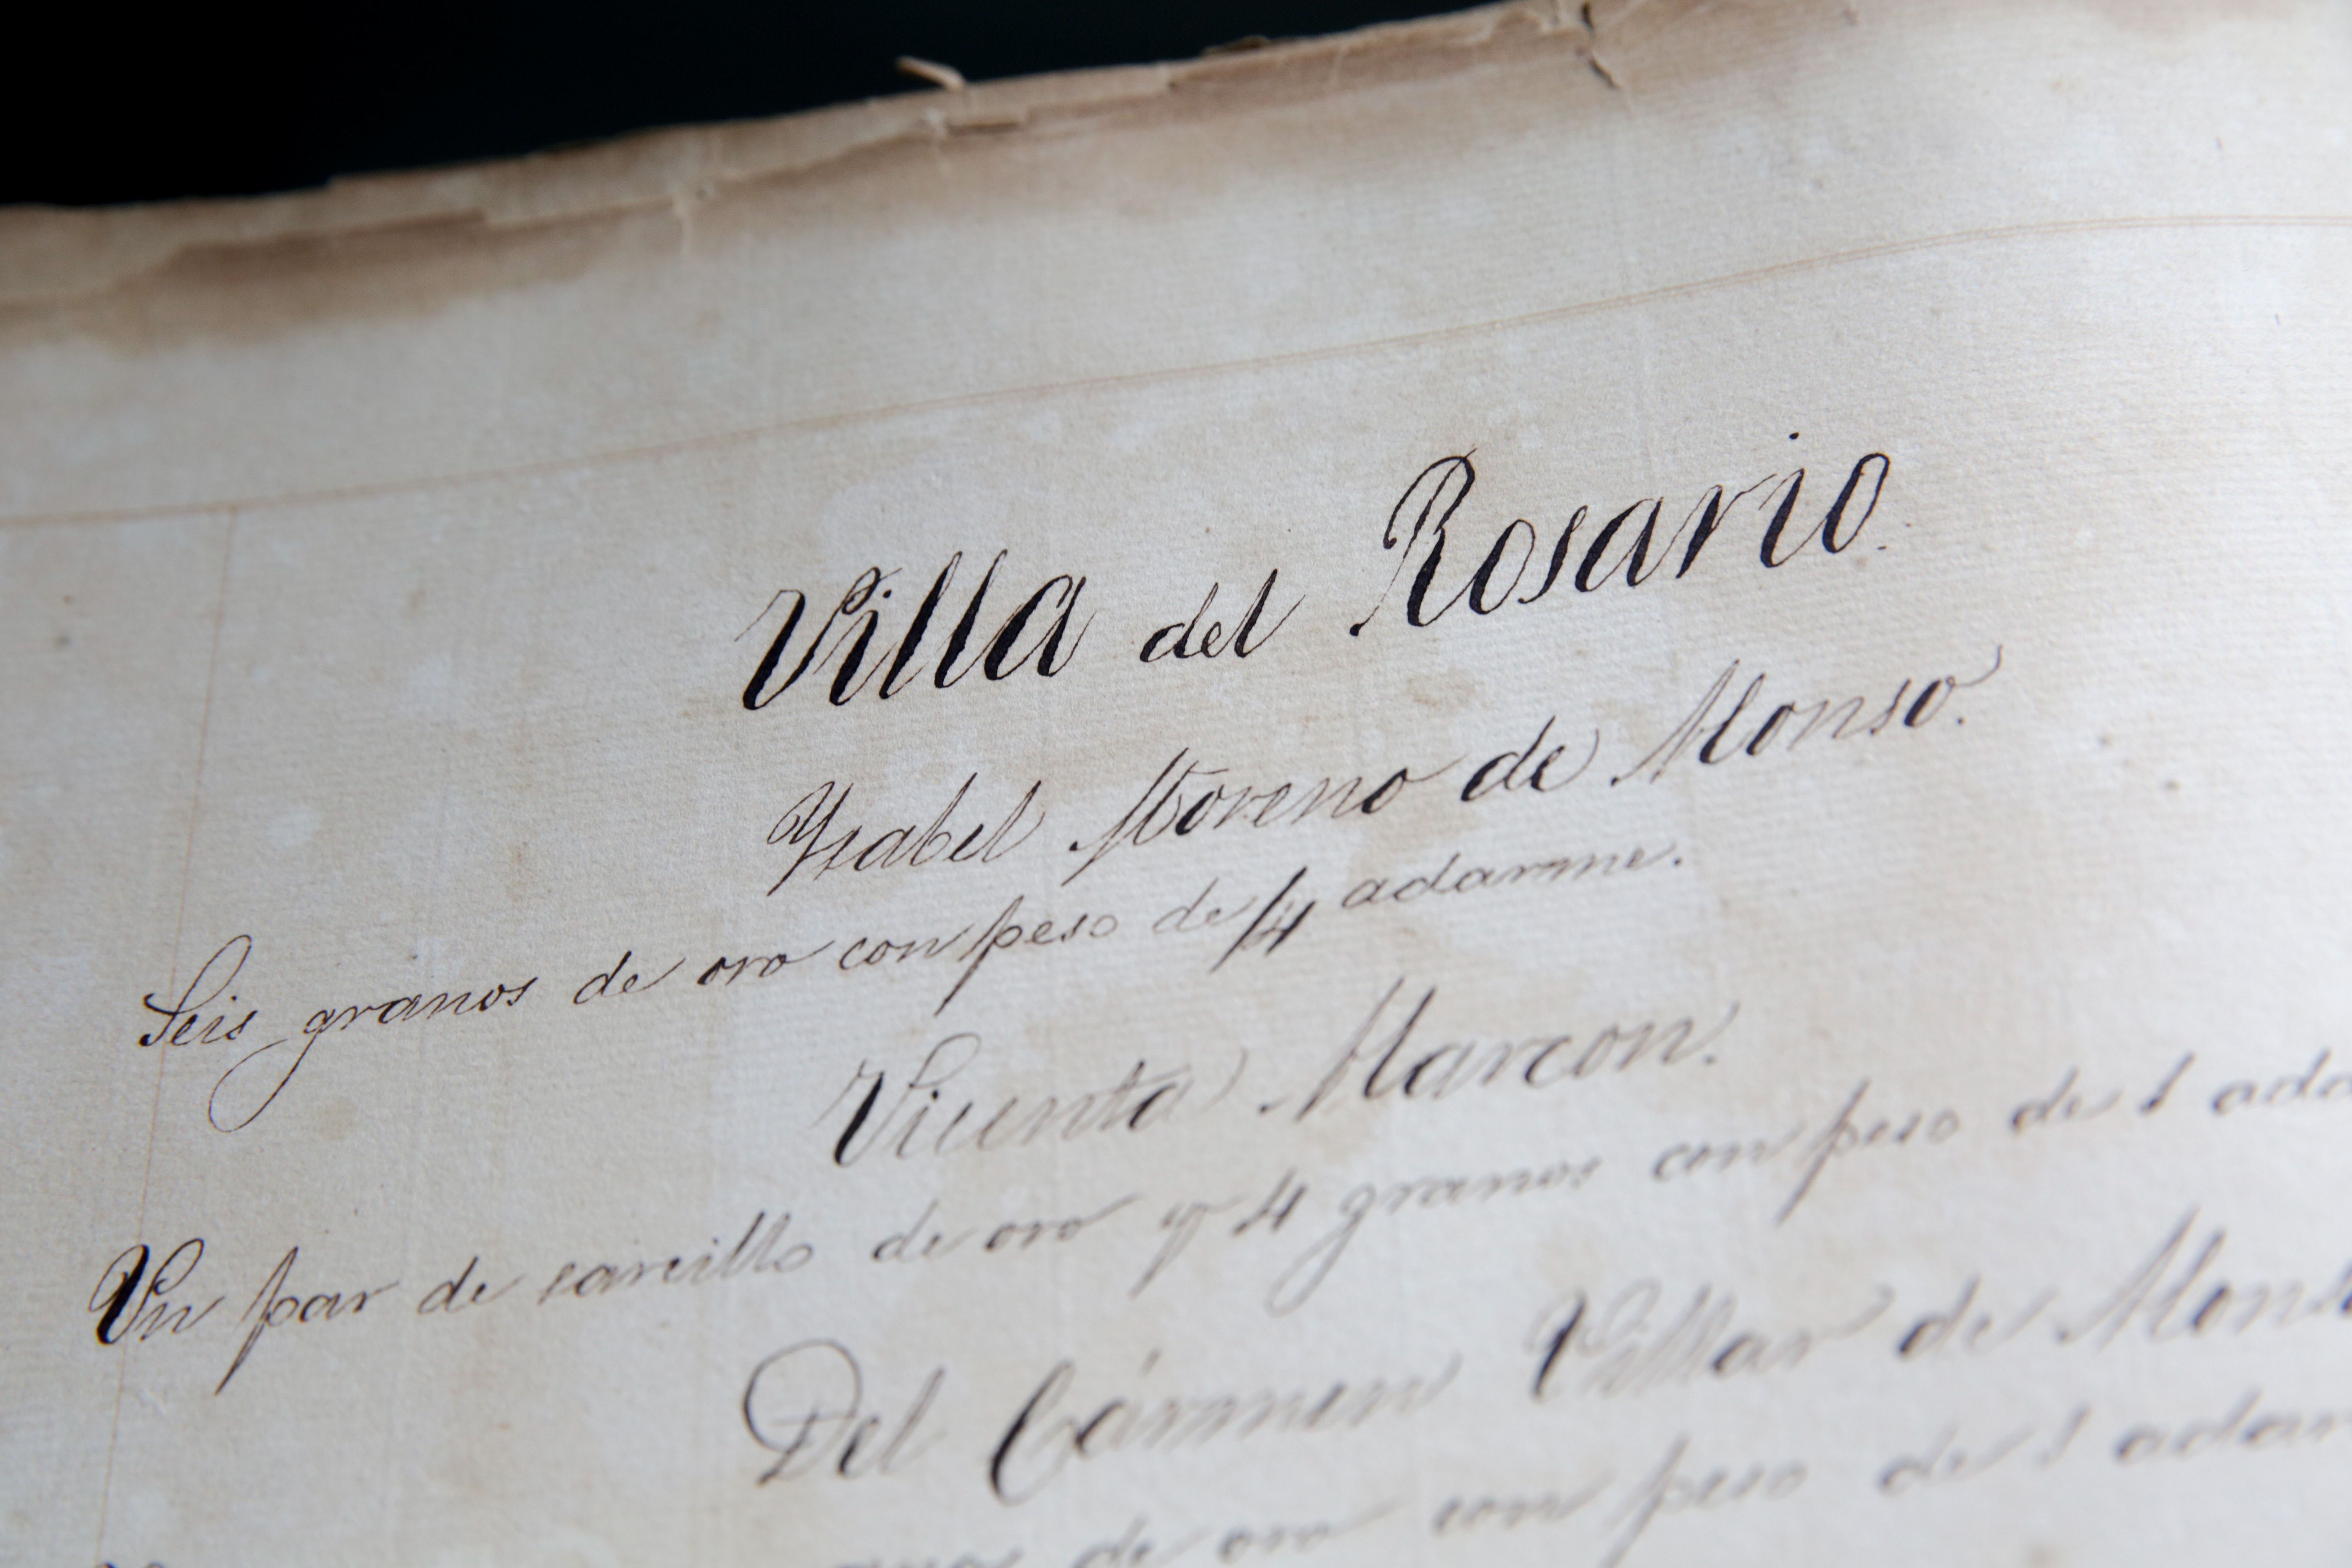 Villa del Rosario.
Ysabel Moreno de Monso.
Seis granos de oro con peso de 1/4 adarme.
Vicenta Marcon.
Un par de sarcillo de oro y 4 granos con peso de 1 ada
Del Cármen Villar de
de oro con peso de 1 adar